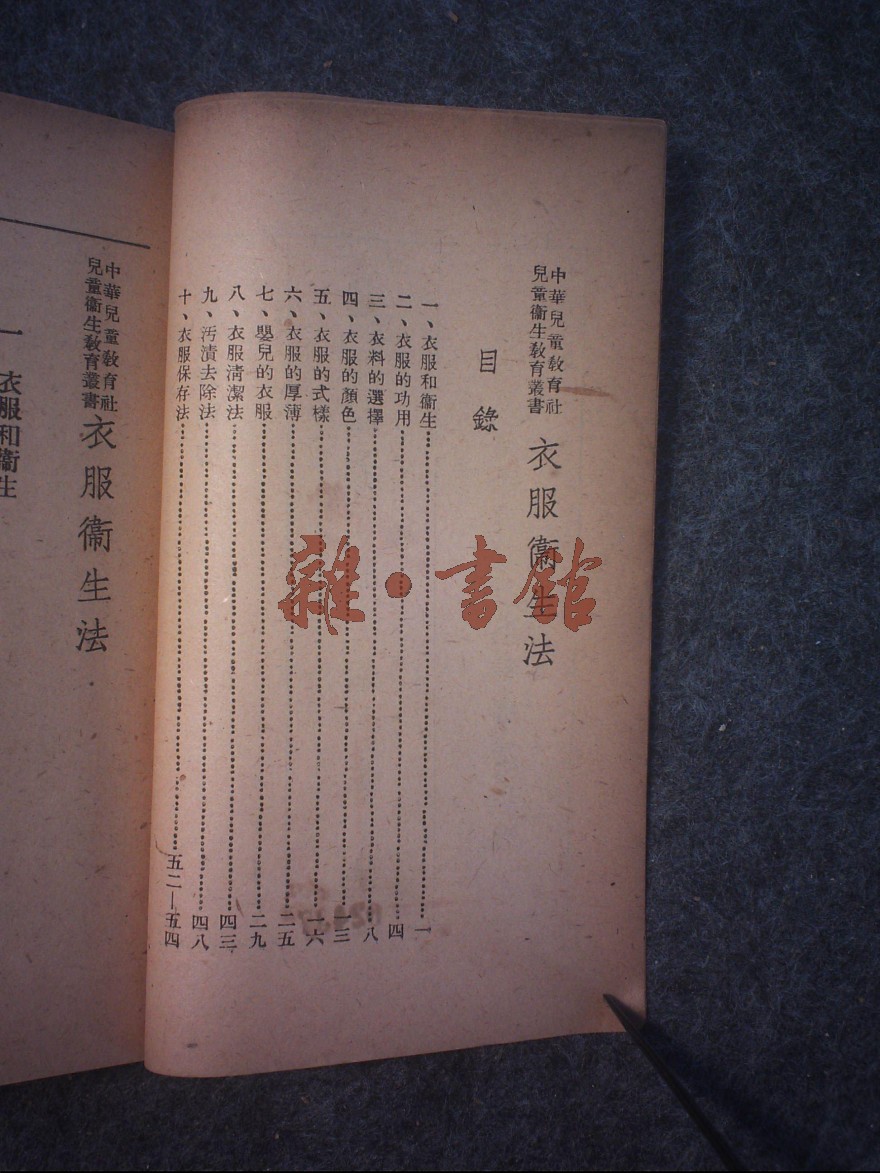 中華兒童教育社
兒童衞生教育叢書
衣服衞生法
目錄
一、衣服和衞生……一
二、衣服的功用……四
三、衣料的選擇……八
四、衣服的顏色……一三
五、衣服的式樣……一六
六、衣服的厚薄……二五
七、嬰兒的衣服……二九
八、衣服清潔法……四三
九、汚漬去除法……四八
十、衣服保存法……五二—五四
中華兒童教育社
兒童衞生教育叢書
衣服衞生法
一 衣服和衞生
雜·書館